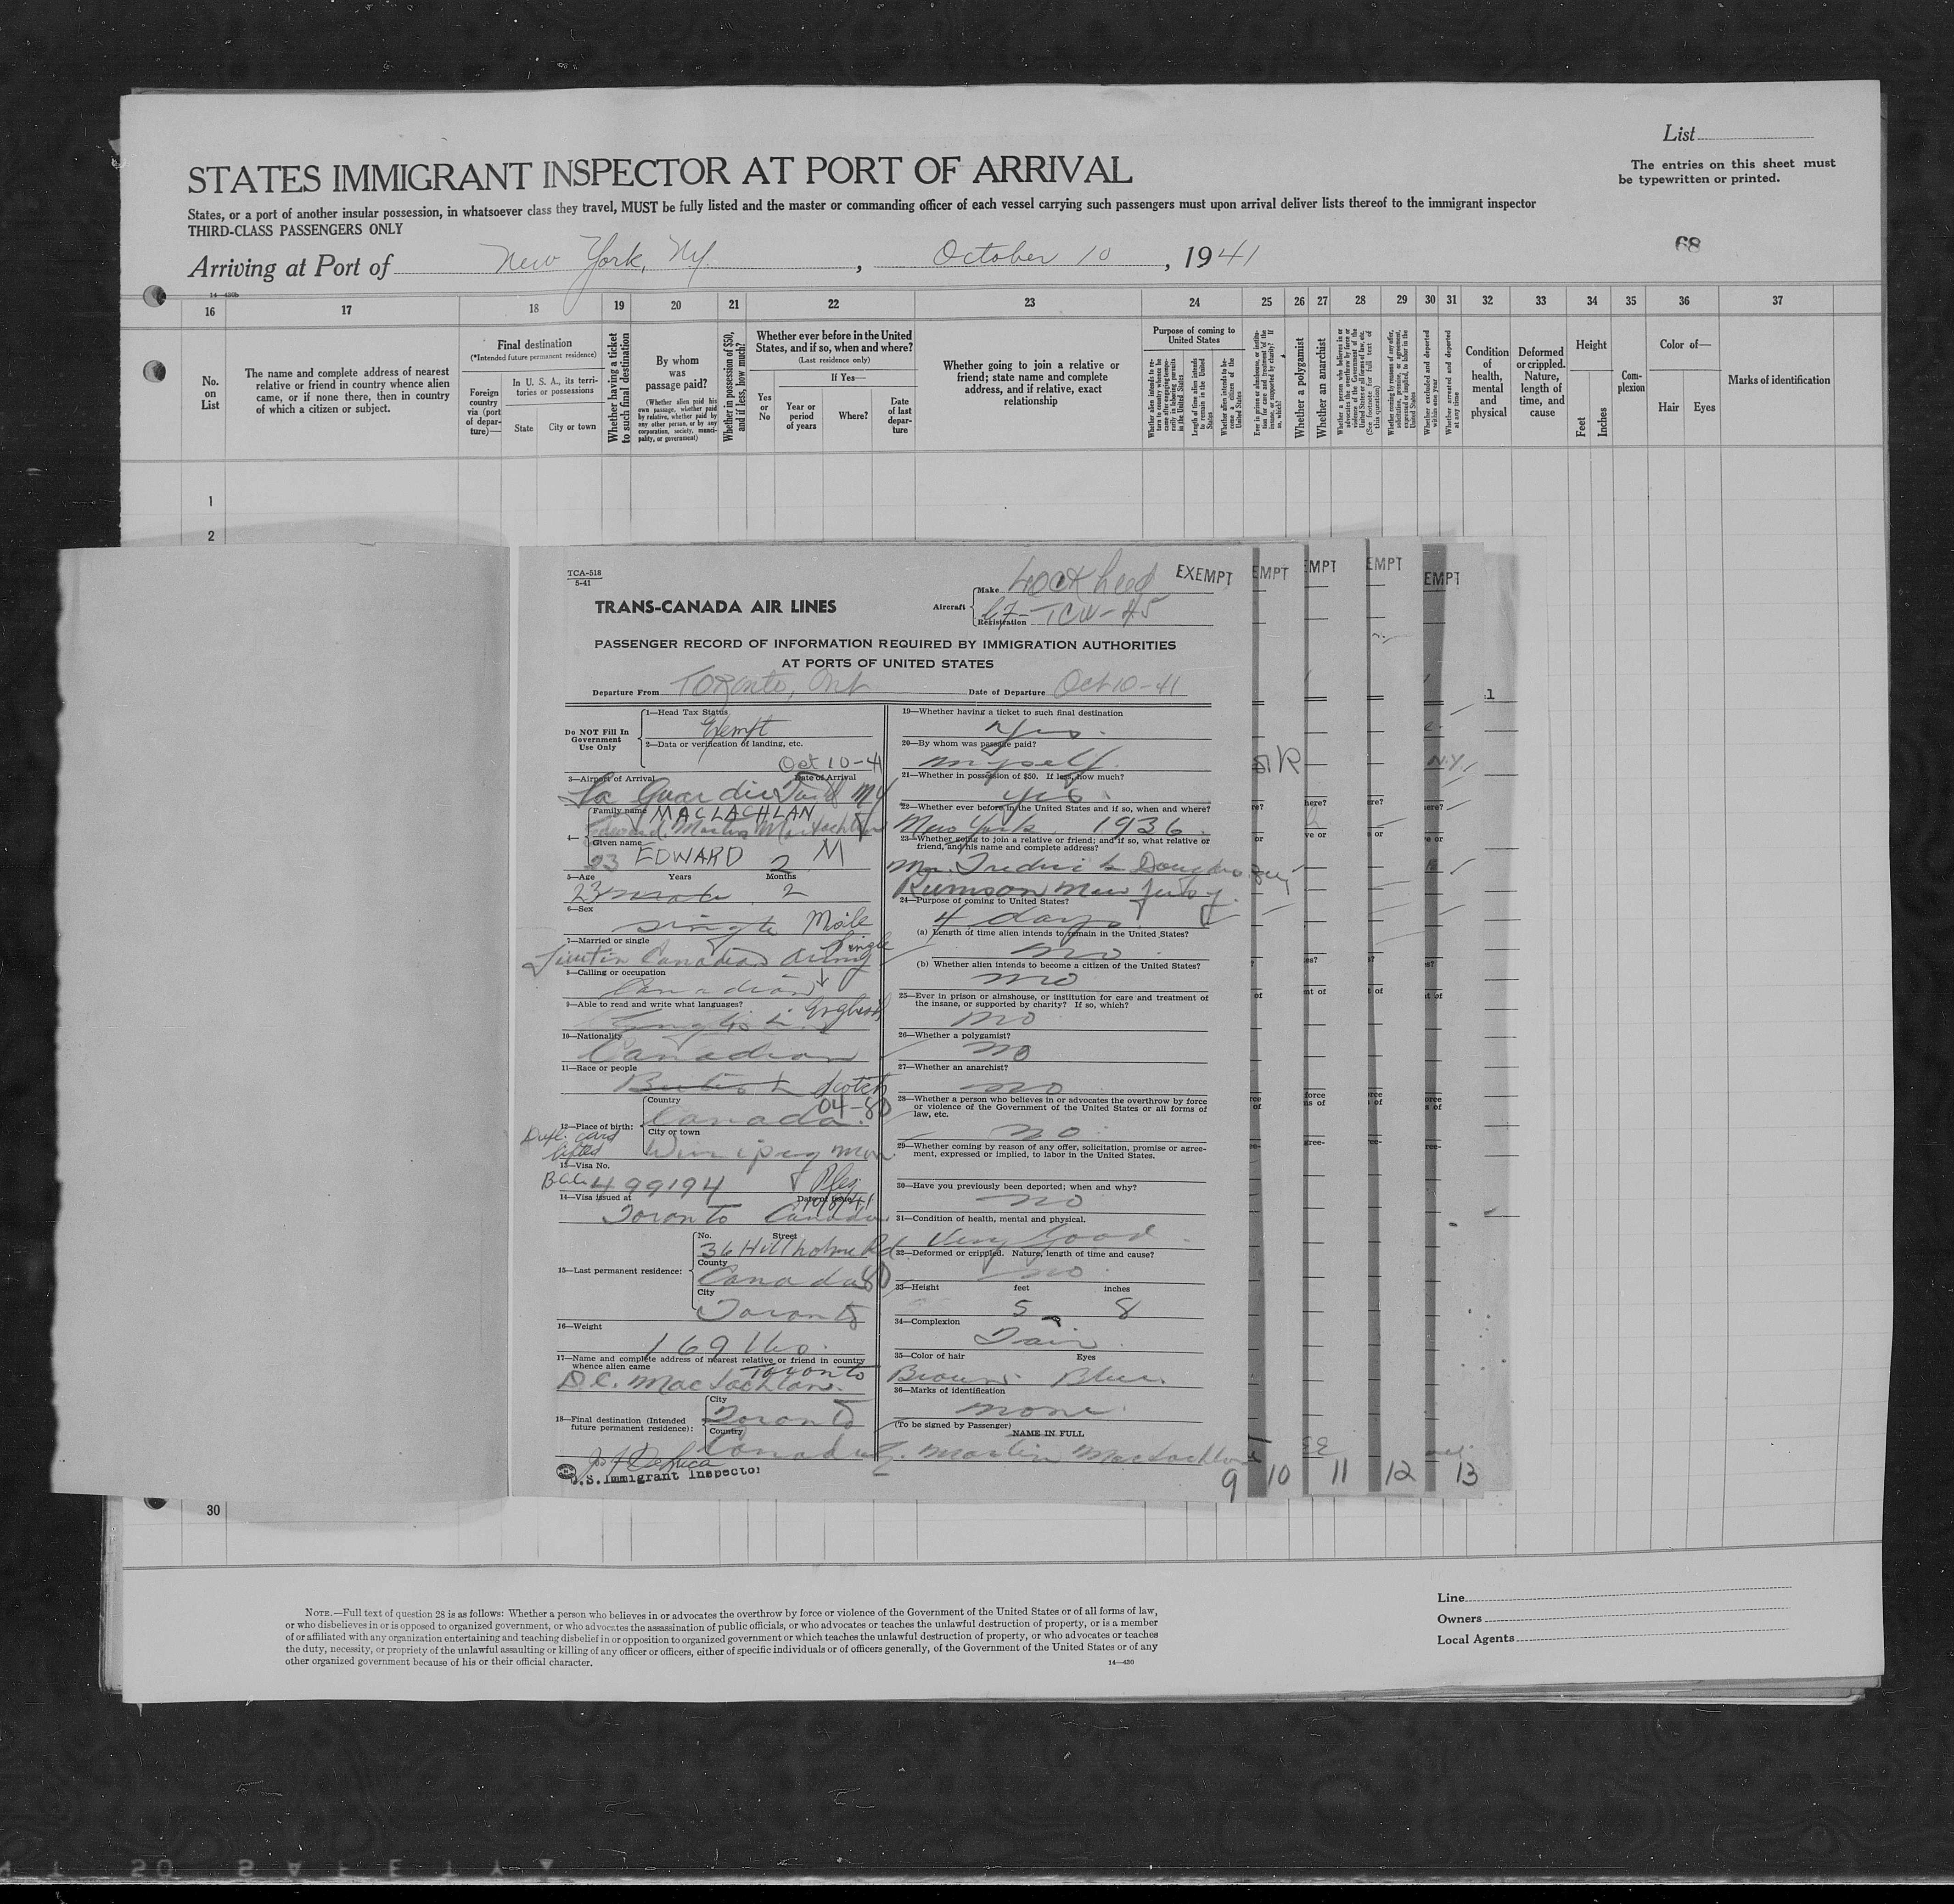 List
STATES IMMIGRANT INSPECTOR AT PORT OF ARRIVAL
The entries on this sheet must
be typewritten or printed.
States, or a port of another insular possession, in whatsoever class they travel, MUST be fully listed and the master or commanding officer of each vessel carrying such passengers must upon arrival deliver lists thereof to the immigrant inspector
THIRD-CLASS PASSENGERS ONLY
68
Arriving at Port of New York, Ny. , October 10 , 1941
16 17 18 19 20 21 22 23 24 25 26 27 28 29 30 31 32 33 34 35 36 37
No. on List
The name and complete address of nearest relative or friend in country whence alien came, or if none there, then in country of which a citizen or subject.
Final destination
(*Intended future permanent residence)
Foreign country via (port of departure)—
In U. S. A., its territories or possessions
State
City or town
Whether having a ticket to such final destination
By whom was passage paid?
(Whether alien paid his own passage, whether paid by relative, whether paid by any other person, or by any corporation, society, municipality, or government)
Whether in possession of $50, and if less, how much?
Whether ever before in the United States, and if so, when and where?
(Last residence only)
Yes or No
If Yes—
Year or period of years
Where?
Date of last departure
Whether going to join a relative or friend; state name and complete address, and if relative, exact relationship
Purpose of coming to United States
Whether a polygamist
Whether an anarchist
Condition of health, mental and physical
Deformed or crippled. Nature, length of time, and cause
Height
Feet
Inches
Complexion
Color of—
Hair
Eyes
Marks of identification
1
2
TCA-518
5-41
TRANS-CANADA AIR LINES
Aircraft
Make Lockheed
Registration
EXEMPT
EMPT
MPT
EMPT
EMPT
PASSENGER RECORD OF INFORMATION REQUIRED BY IMMIGRATION AUTHORITIES
AT PORTS OF UNITED STATES
Departure From Toronto, Ont Date of Departure Oct 10-41
Do NOT Fill In
Government
Use Only
1—Head Tax Status
Exempt
2—Data or verification of landing, etc.
Oct 10-41
3—Airport of Arrival Date of Arrival
La Guardia
4—
Family name MACLACHLAN
Edward Martin MacLachlan
Given name
23 EDWARD 2 M
5—Age Years Months
23 male 2
6—Sex
single Male
7—Married or single
Single
Canadian Army
8—Calling or occupation
Canadian
9—Able to read and write what languages?
English English
10—Nationality
Canadian
11—Race or people
British Scotch
12—Place of birth:
Country
Canada 04-80
City or town
Winnipeg Man
Dupl. card
lifted
13—Visa No.
499194
14—Visa issued at Date of Issue
Toronto Canada
15—Last permanent residence:
No. Street
36 Hillholme Rd
County
Canada 80
City
Toronto
16—Weight
169 lbs.
17—Name and complete address of nearest relative or friend in country
whence alien came
Toronto
D.C. MacLachlan.
18—Final destination (Intended
future permanent residence):
City
Toronto
Country
Canada
U.S. Immigrant Inspector
19—Whether having a ticket to such final destination
yes.
20—By whom was passage paid?
myself.
21—Whether in possession of $50. If less, how much?
yes
22—Whether ever before in the United States and if so, when and where?
New York. 1936.
23—Whether going to join a relative or friend; and if so, what relative or
friend, and his name and complete address?
Rumson New Jersey.
24—Purpose of coming to United States?
4 days
(a) Length of time alien intends to remain in the United States?
no
(b) Whether alien intends to become a citizen of the United States?
no
25—Ever in prison or almshouse, or institution for care and treatment of
the insane, or supported by charity? If so, which?
no
26—Whether a polygamist?
no
27—Whether an anarchist?
no
28—Whether a person who believes in or advocates the overthrow by force
or violence of the Government of the United States or all forms of
law, etc.
no
29—Whether coming by reason of any offer, solicitation, promise or agree-
ment, expressed or implied, to labor in the United States.
30—Have you previously been deported; when and why?
no
31—Condition of health, mental and physical.
Very Good
32—Deformed or crippled. Nature, length of time and cause?
no
33—Height feet inches
5 8
34—Complexion
Fair
35—Color of hair Eyes
Brown Blue
36—Marks of identification
none.
(To be signed by Passenger)
NAME IN FULL
E. Martin MacLachlan
9 10 11 12 13
30
NOTE.—Full text of question 28 is as follows: Whether a person who believes in or advocates the overthrow by force or violence of the Government of the United States or of all forms of law,
or who disbelieves in or is opposed to organized government, or who advocates the assassination of public officials, or who advocates or teaches the unlawful destruction of property, or is a member
of or affiliated with any organization entertaining and teaching disbelief in or opposition to organized government or which teaches the unlawful destruction of property, or who advocates or teaches
the duty, necessity, or propriety of the unlawful assaulting or killing of any officer or officers, either of specific individuals or of officers generally, of the Government of the United States or of any
other organized government because of his or their official character.
14—430
Line
Owners
Local Agents